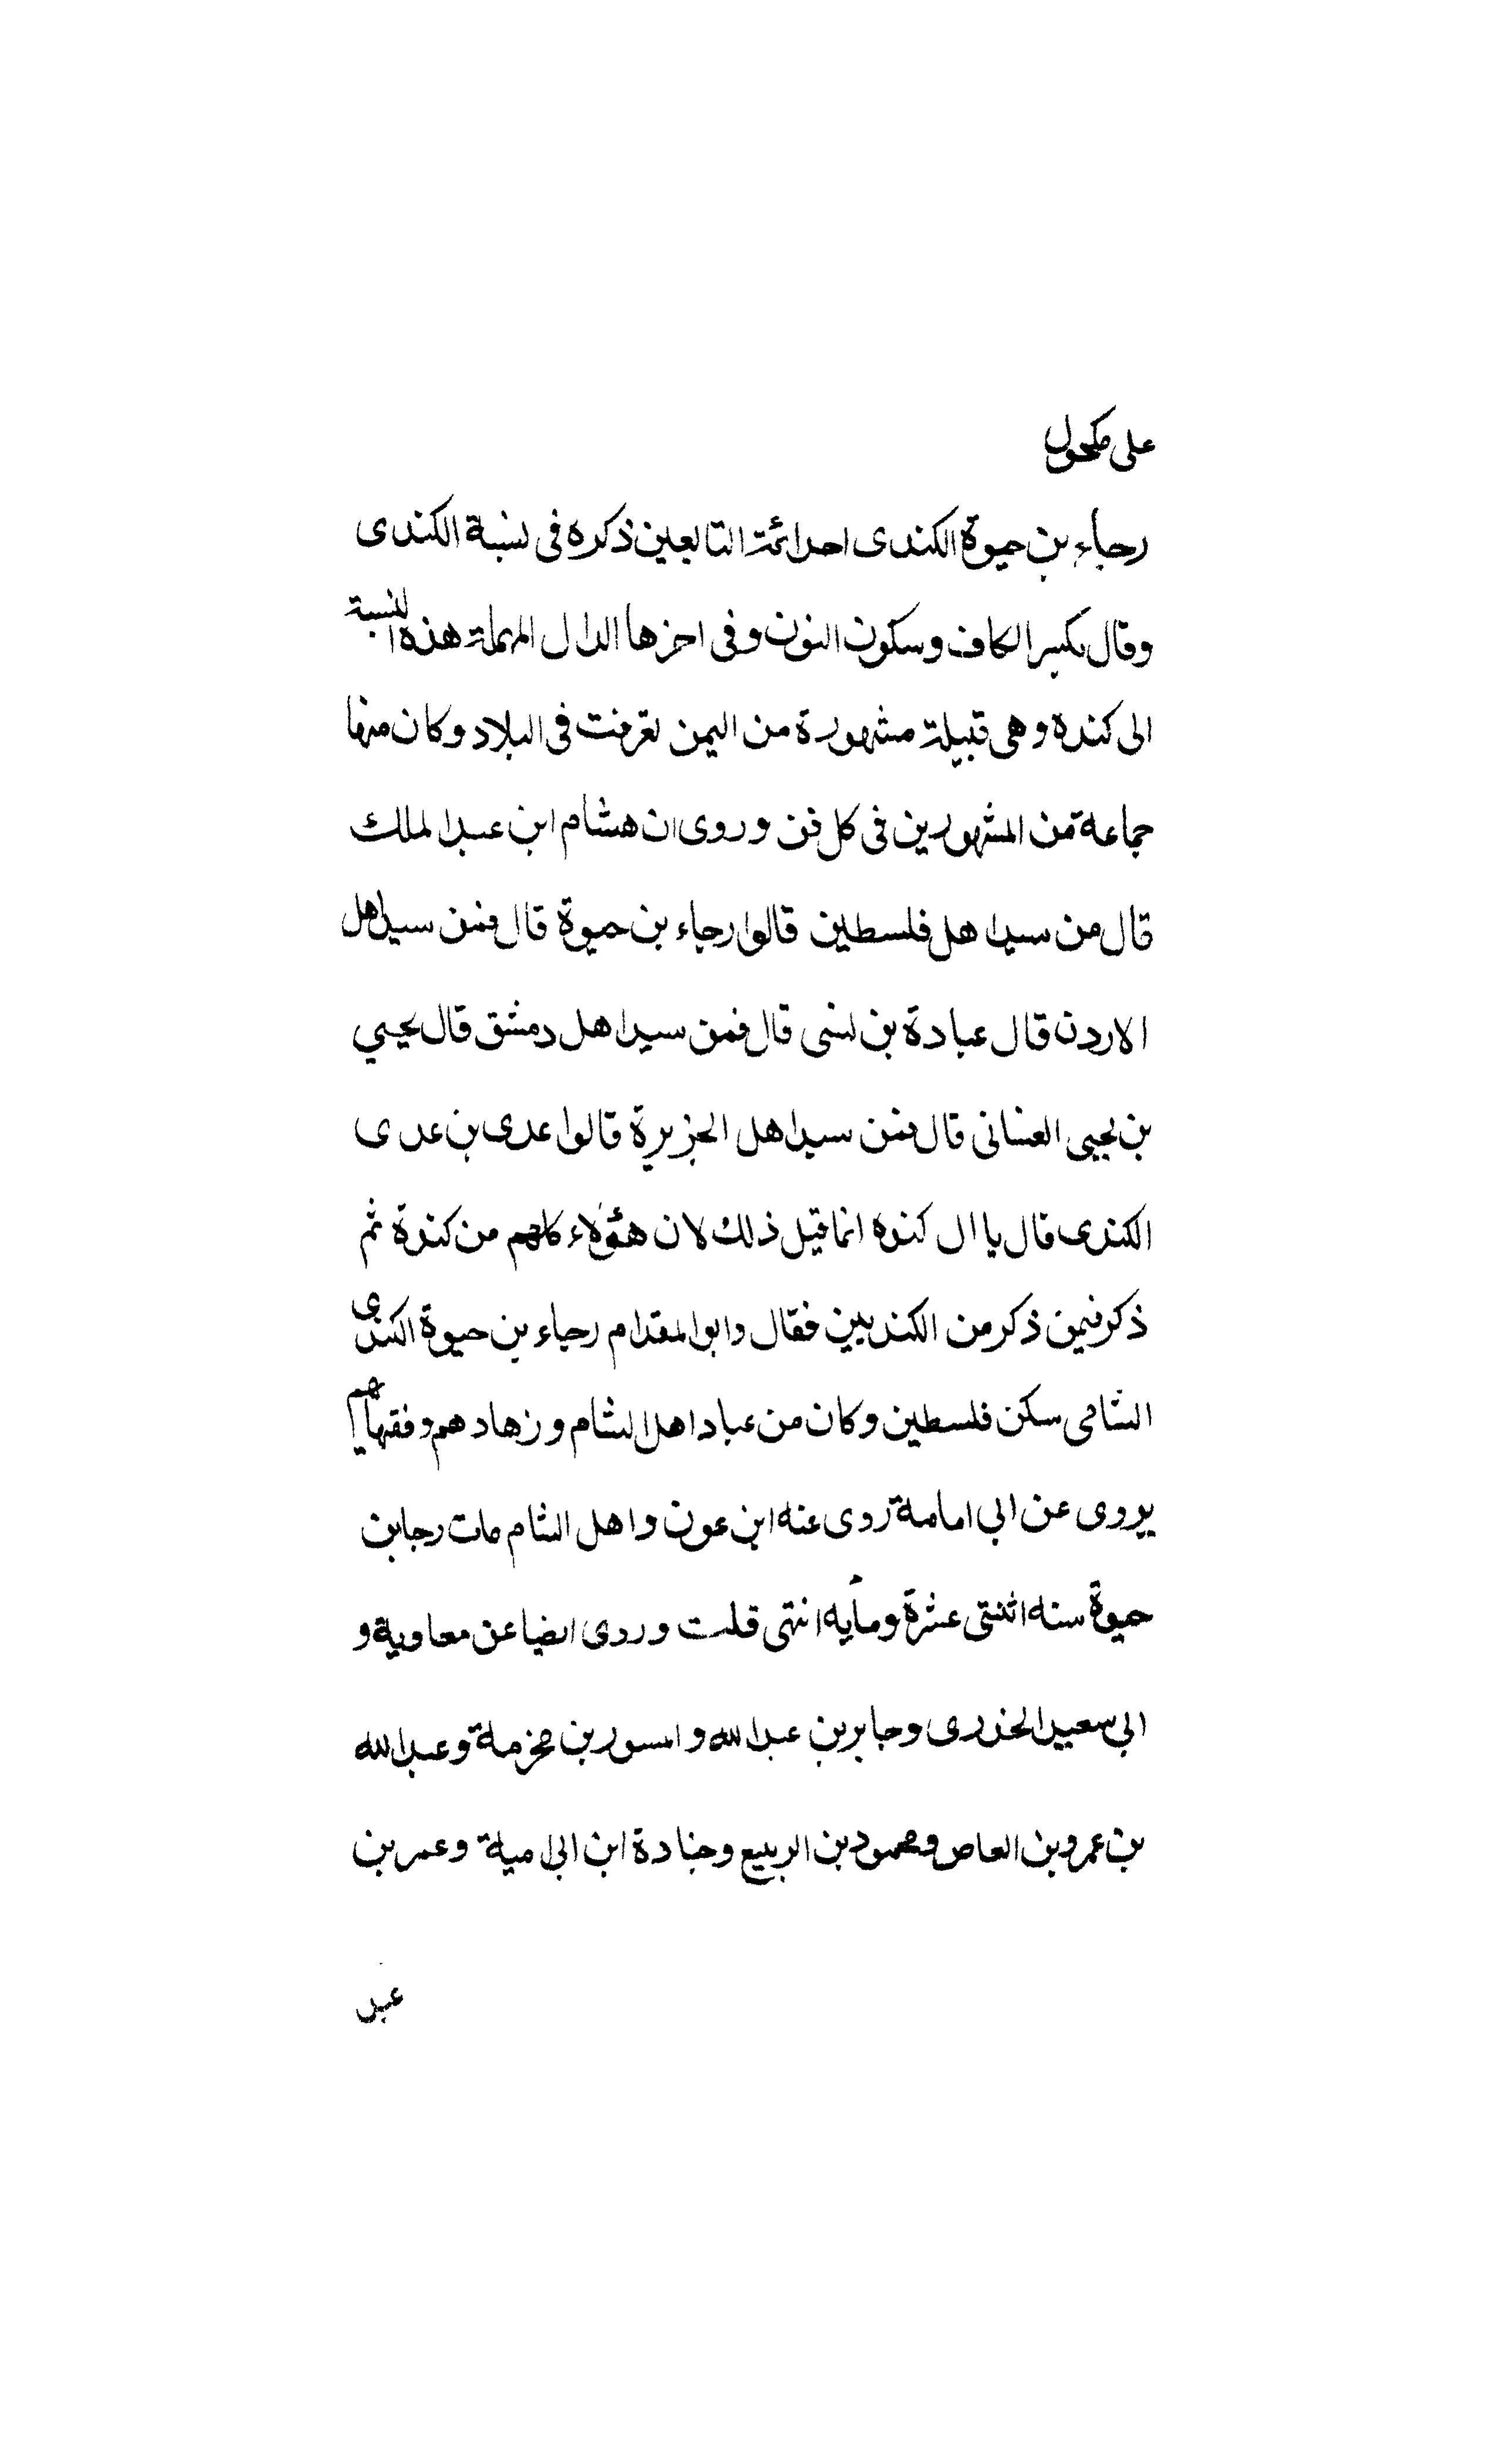 على مكحول
رجاء بن حيوة الكندى احد ائمة التابعين ذكره فى نسبة الكندى
وقال بكسر الكاف وسكون النون وفى اخرها الدال المهملة هذه النسبة
الى كنده وهى قبيلة مشهورة من اليمن تفرقت فى البلاد وكان منها
جماعة من المشهورين فى كل فن وروى ان هشام ابن عبد الملك
قال من سيد اهل فلسطين قالوا رجاء بن حيوة قال فمن سيد اهل
الاردن قال عبادة بن نسى قال فمن سيد اهل دمشق قال يحيي
بن يحيى الغسانى قال فمن سيد اهل الجزيرة قالوا عدى بن عدى
الكندى قال يا ال كنده انما قيل ذلك لان هؤلاء كلهم من كندة ثم
ذكر فيمن ذكر من الكنديين فقال وابو المقدام رجاء بن حيوة الكندى
الشامى سكن فلسطين وكان من عباد اهل الشام وزهادهم وفقهائهم
يروى عن ابي امامة روى عنه ابن عون واهل الشام مات رجا بن
حيوة سنه اثنتى عشرة ومأيه انتهى قلت وروى ايضا عن معاوية و
ابي سعيد الخدرى وجابر بن عبد الله والمسور بن مخرمة وعبد الله
بن عمرو بن العاص ومحمود بن الربيع وجنادة ابن ابي امية وعمر بن
عبد